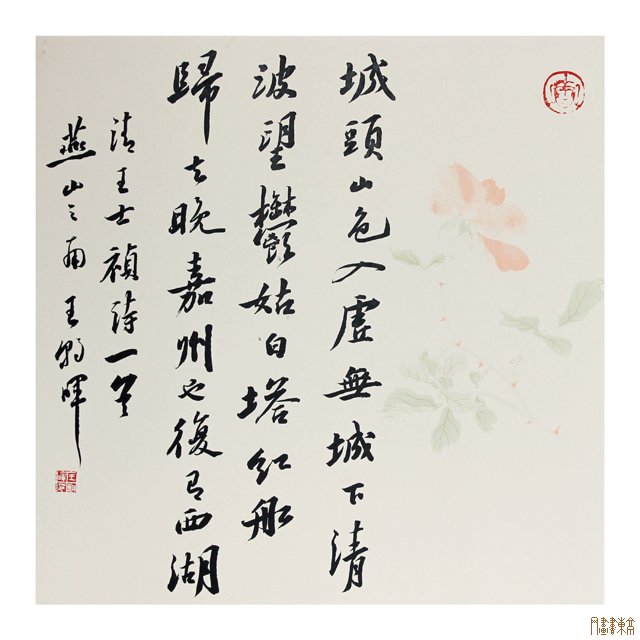 城頭山色入虛無城下清
波望鬱姑白塔紅船
歸去晚嘉州也復有西湖
清王士禎詩一首
燕山之南王暉